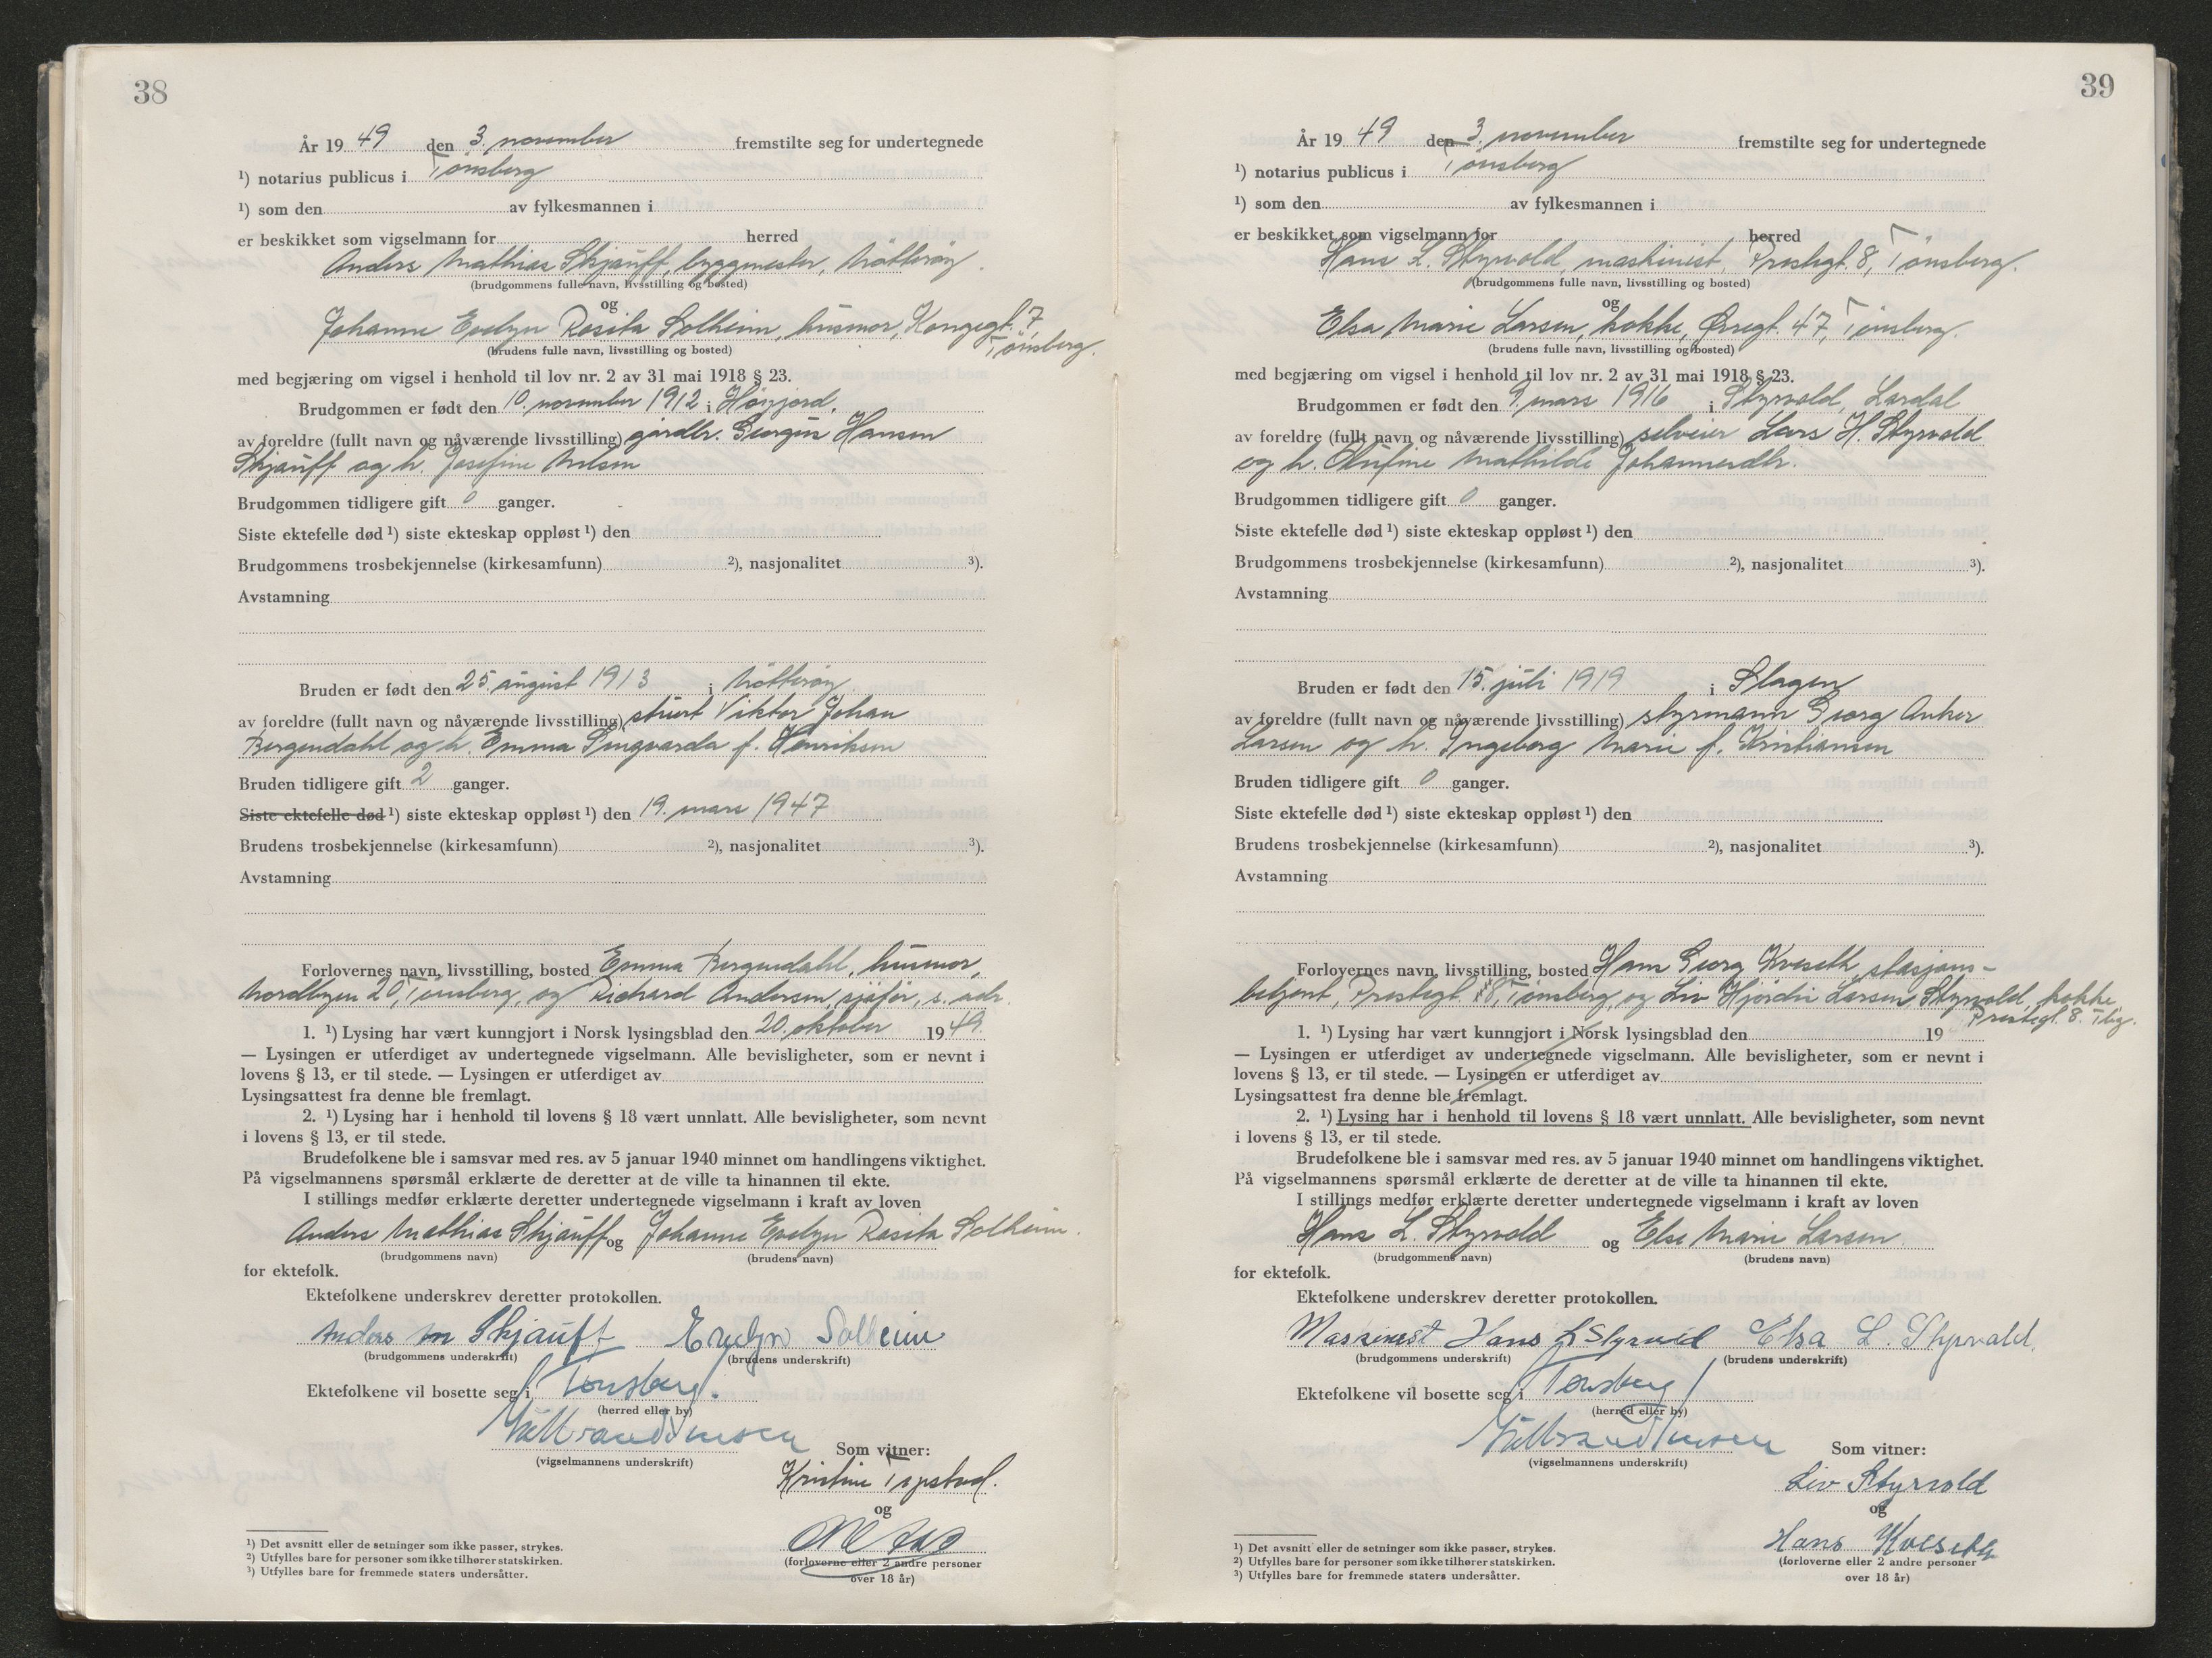 38
År 19 49 den 3. november fremstilte seg for undertegnede
¹) notarius publicus i Tönsberg
¹) som den av fylkesmannen i
er beskikket som vigselmann for herred
Anders Mathias Skjauff, byggmester, Nötteröy.
(brudgommens fulle navn, livsstilling og bosted)
og
Johanne Evelyn Rosita Solheim, husmor, Kongegt. 7,
Tönsberg.
(brudens fulle navn, livsstilling og bosted)
med begjæring om vigsel i henhold til lov nr. 2 av 31 mai 1918 § 23.
Brudgommen er født den 10. november 1912 i
av foreldre (fullt navn og nåværende livsstilling) gårdbr. Georgius Hansen
Skjauff og h. Josefine Nilsen
Brudgommen tidligere gift 0 ganger.
Siste ektefelle død ¹) siste ekteskap oppløst ¹) den
Brudgommens trosbekjennelse (kirkesamfunn) ²), nasjonalitet ³).
Avstamning
Bruden er født den 25. august 1913 i Nötteröy.
av foreldre (fullt navn og nåværende livsstilling) Viktor Johan
Bergendahl og h. Emma f. Henriksen
Bruden tidligere gift 2 ganger.
Siste ektefelle død ¹) siste ekteskap oppløst ¹) den 19. mars 1947
Brudens trosbekjennelse (kirkesamfunn) ²), nasjonalitet ³).
Avstamning
Forlovernes navn, livsstilling, bosted Emma Bergendahl, husmor,
Nordbyen 20, Tönsberg, og Richard Andersen, sjåför, s. adr.
1. ¹) Lysing har vært kunngjort i Norsk lysingsblad den 20. oktober 19 49.
— Lysingen er utferdiget av undertegnede vigselmann. Alle bevisligheter, som er nevnt i
lovens § 13, er til stede. — Lysingen er utferdiget av
Lysingsattest fra denne ble fremlagt.
2. ¹) Lysing har i henhold til lovens § 18 vært unnlatt. Alle bevisligheter, som nevnt
i lovens § 13, er til stede.
Brudefolkene ble i samsvar med res. av 5 januar 1940 minnet om handlingens viktighet.
På vigselmannens spørsmål erklærte de deretter at de ville ta hinannen til ekte.
I stillings medfør erklærte deretter undertegnede vigselmann i kraft av loven
Anders Mathias Skjauff og Johanne Evelyn Rosita Solheim.
(brudgommens navn) (brudens navn)
for ektefolk.
Ektefolkene underskrev deretter protokollen.
Anders M Skjauff Evelyn Solheim
(brudgommens underskrift) (brudens underskrift)
Ektefolkene vil bosette seg i Tönsberg.
(herred eller by)
(vigselmannens underskrift)
Som vitner:
Kristine
og
(forloverne eller 2 andre personer
over 18 år)
¹) Det avsnitt eller de setninger som ikke passer, strykes.
²) Utfylles bare for personer som ikke tilhører statskirken.
³) Utfylles bare for fremmede staters undersåtter.
39
År 19 49 den 3. november fremstilte seg for undertegnede
¹) notarius publicus i Tönsberg
¹) som den av fylkesmannen i
er beskikket som vigselmann for herred
Hans L. Styrvold, maskinist, Prestegt. 8, Tönsberg.
(brudgommens fulle navn, livsstilling og bosted)
og
Elsa Marie Larsen, kokke, Övregt. 47, Tönsberg.
(brudens fulle navn, livsstilling og bosted)
med begjæring om vigsel i henhold til lov nr. 2 av 31 mai 1918 § 23.
Brudgommen er født den 9. mars 1916 i Styrvold, Lardal
av foreldre (fullt navn og nåværende livsstilling) selveier Lars H. Styrvold
og h. Olufine Mathilde Johannesdtr.
Brudgommen tidligere gift 0 ganger.
Siste ektefelle død ¹) siste ekteskap oppløst ¹) den
Brudgommens trosbekjennelse (kirkesamfunn) ²), nasjonalitet ³).
Avstamning
Bruden er født den 15. juli 1919 i Slagen
av foreldre (fullt navn og nåværende livsstilling) styrmann Georg Anker
Larsen og h. Ingeborg Marie f. Kristiansen
Bruden tidligere gift 0 ganger.
Siste ektefelle død ¹) siste ekteskap oppløst ¹) den
Brudens trosbekjennelse (kirkesamfunn) ²), nasjonalitet ³).
Avstamning
Forlovernes navn, livsstilling, bosted Hans Georg Kveseth, stasjons-
betjent, Prestegt. 8, Tönsberg, og Liv Hjördis Larsen Styrvold, kokke,
Prestegt. 8. Tbg.
1. ¹) Lysing har vært kunngjort i Norsk lysingsblad den 19
— Lysingen er utferdiget av undertegnede vigselmann. Alle bevisligheter, som er nevnt i
lovens § 13, er til stede. — Lysingen er utferdiget av
Lysingsattest fra denne ble fremlagt.
2. ¹) Lysing har i henhold til lovens § 18 vært unnlatt. Alle bevisligheter, som nevnt
i lovens § 13, er til stede.
Brudefolkene ble i samsvar med res. av 5 januar 1940 minnet om handlingens viktighet.
På vigselmannens spørsmål erklærte de deretter at de ville ta hinannen til ekte.
I stillings medfør erklærte deretter undertegnede vigselmann i kraft av loven
Hans L. Styrvold og Else Marie Larsen
(brudgommens navn) (brudens navn)
for ektefolk.
Ektefolkene underskrev deretter protokollen.
Maskinest Hans L Styrvold Elsa L. Styrvold.
(brudgommens underskrift) (brudens underskrift)
Ektefolkene vil bosette seg i Tönsberg
(herred eller by)
(vigselmannens underskrift)
Som vitner:
Liv Styrvold
og
Hans Kveseth
(forloverne eller 2 andre personer
over 18 år)
¹) Det avsnitt eller de setninger som ikke passer, strykes.
²) Utfylles bare for personer som ikke tilhører statskirken.
³) Utfylles bare for fremmede staters undersåtter.